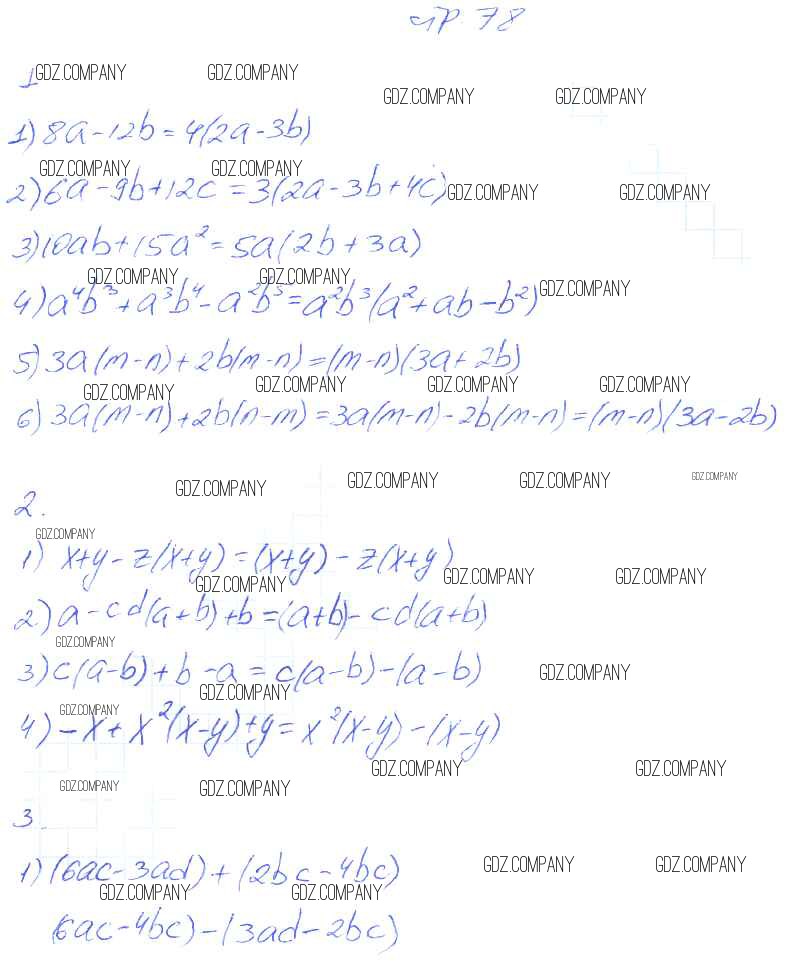 стр. 78
1
GDZ.COMPANY GDZ.COMPANY
GDZ.COMPANY GDZ.COMPANY
1) 8a-12b=4(2a-3b)
GDZ.COMPANY GDZ.COMPANY
2) 6a-9b+12c=3(2a-3b+4c)
GDZ.COMPANY GDZ.COMPANY
3) 10ab+15a²=5a(2b+3a)
GDZ.COMPANY GDZ.COMPANY GDZ.COMPANY
4) a⁴b³+a³b⁴-a²b⁵=a²b³(a²+ab-b²)
5) 3a(m-n)+2b(m-n)=(m-n)(3a+2b)
GDZ.COMPANY GDZ.COMPANY GDZ.COMPANY GDZ.COMPANY
6) 3a(m-n)+2b(n-m)=3a(m-n)-2b(m-n)=(m-n)(3a-2b)
GDZ.COMPANY GDZ.COMPANY GDZ.COMPANY GDZ.COMPANY
2.
GDZ.COMPANY
1) x+y-z(x+y)=(x+y)-z(x+y)
GDZ.COMPANY GDZ.COMPANY GDZ.COMPANY
2) a-cd(a+b)+b=(a+b)-cd(a+b)
GDZ.COMPANY
3) c(a-b)+b-a=c(a-b)-(a-b)
GDZ.COMPANY GDZ.COMPANY
GDZ.COMPANY
4) -x+x²(x-y)+y=x²(x-y)-(x-y)
GDZ.COMPANY GDZ.COMPANY
GDZ.COMPANY GDZ.COMPANY
3.
1) (6ac-3ad)+(2bc-4bc)
GDZ.COMPANY GDZ.COMPANY
GDZ.COMPANY GDZ.COMPANY
(6ac-4bc)-(3ad-2bc)